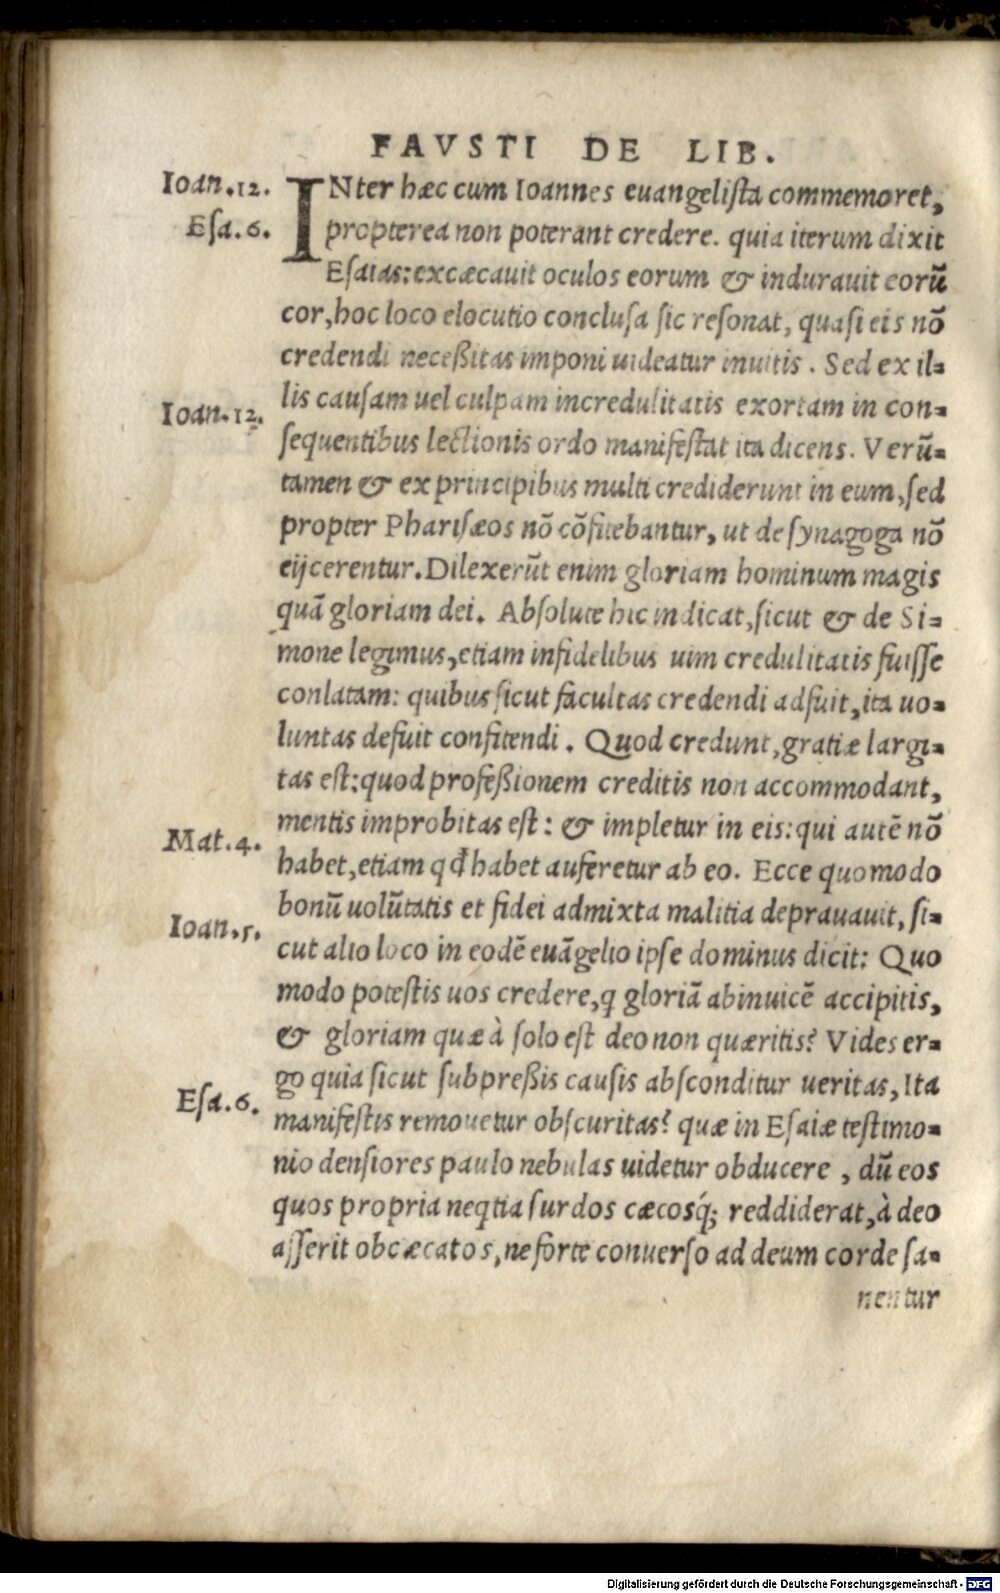 FAVSTI DE LIB.
Ioan.12.
INter hæc cum Ioannes euangelista commemoret,
Esa.6.
propterea non poterant credere. quia iterum dixit
Esaias: excæcauit oculos eorum & indurauit eorũ
cor, hoc loco elocutio conclusa sic resonat, quasi eis nõ
credendi neceßitas imponi uideatur inuitis. Sed ex il-
Ioan.12.
lis causam uel culpam incredulitatis exortam in con-
sequentibus lectionis ordo manifestat ita dicens. Verũ-
tamen & ex principibus multi crediderunt in eum, sed
propter Pharisæos nõ cõfitebantur, ut de synagoga nõ
eijcerentur. Dilexerũt enim gloriam hominum magis
quã gloriam dei. Absolute hic indicat, sicut & de Si-
mone legimus, etiam infidelibus uim credulitatis fuisse
conlatam: quibus sicut facultas credendi adfuit, ita uo-
luntas defuit confitendi. Quod credunt, gratiæ largi-
tas est: quod profeßionem creditis non accommodant,
Mat.4.
mentis improbitas est: & impletur in eis: qui autẽ nõ
habet, etiam qđ habet auferetur ab eo. Ecce quomodo
bonũ uolũtatis et fidei admixta malitia deprauauit, si-
Ioan.5.
cut alio loco in eodẽ euãgelio ipse dominus dicit: Quo
modo potestis uos credere, q gloriã abinuicẽ accipitis,
& gloriam quæ à solo est deo non quæritis? Vides er-
go quia sicut subpreßis causis absconditur ueritas, Ita
Esa.6.
manifestis remouetur obscuritas? quæ in Esaiæ testimo-
nio densiores paulo nebulas uidetur obducere, dũ eos
quos propria neqtia surdos cæcosq́; reddiderat, à deo
asserit obcæcatos, ne forte conuerso ad deum corde sa-
nentur
Digitalisierung gefördert durch die Deutsche Forschungsgemeinschaft - DFG